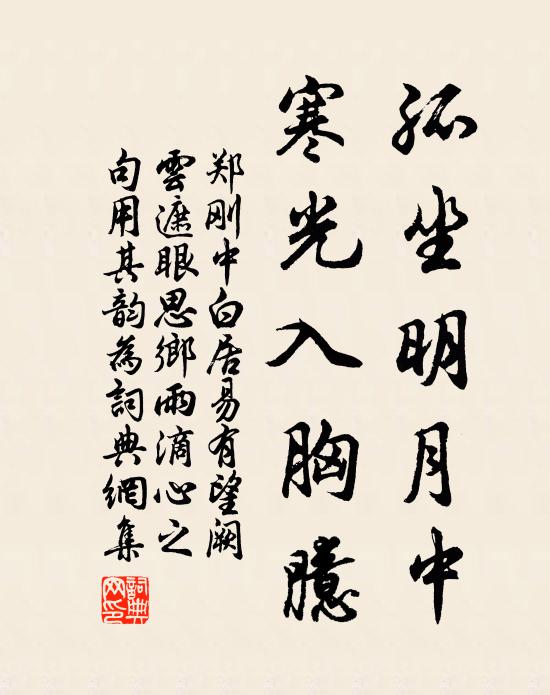 孤坐明月中
寒光入胸臆
郑刚中白居易有望阙
雲遮眼思鄉雨滴心之
句用其韵為詞典網集
詞典网印